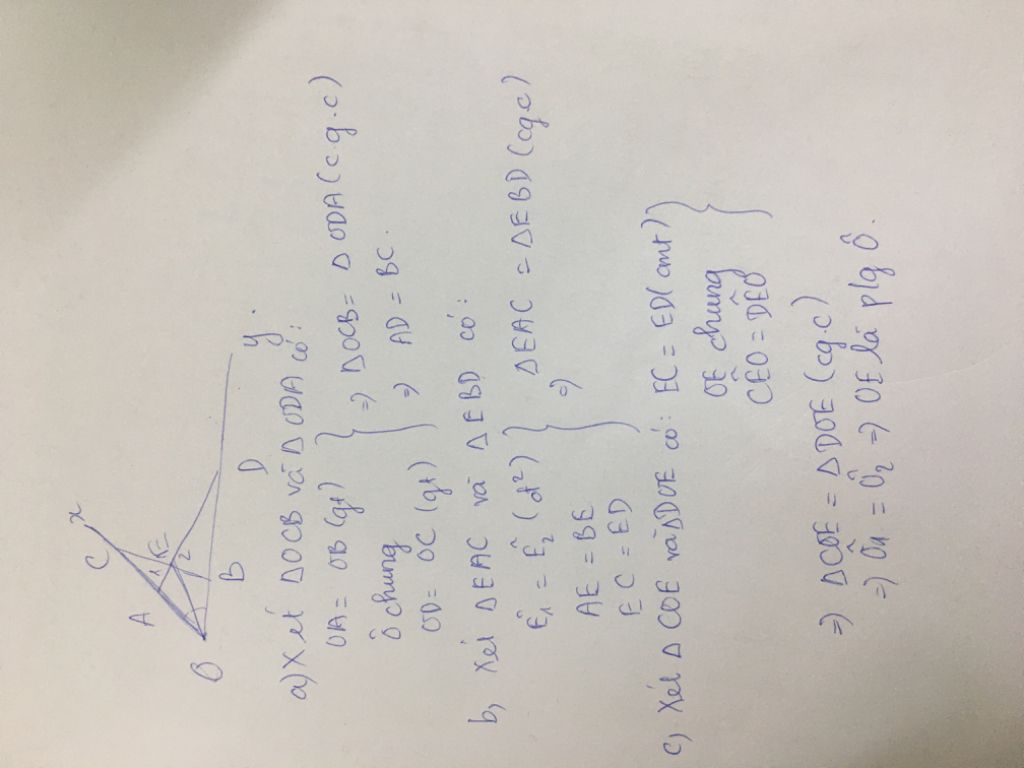 x
C
A
E
1
2
O
B
D
y
a) Xét ΔOCB và ΔODA có:
OA = OB (gt)
Ô chung
OD = OC (gt)
=> ΔOCB = ΔODA (c g.c)
=> AD = BC.
b, Xét ΔEAC và ΔEBD có:
Ê1 = Ê2 (đ²)
AE = BE
EC = ED
=> ΔEAC = ΔEBD (cg.c)
c) Xét ΔCOE và ΔDOE có: EC = ED (cmt)
OE chung
CÊO = DÊO
=> ΔCOE = ΔDOE (cg.c)
=> Ô1 = Ô2 => OE là p/g Ô.